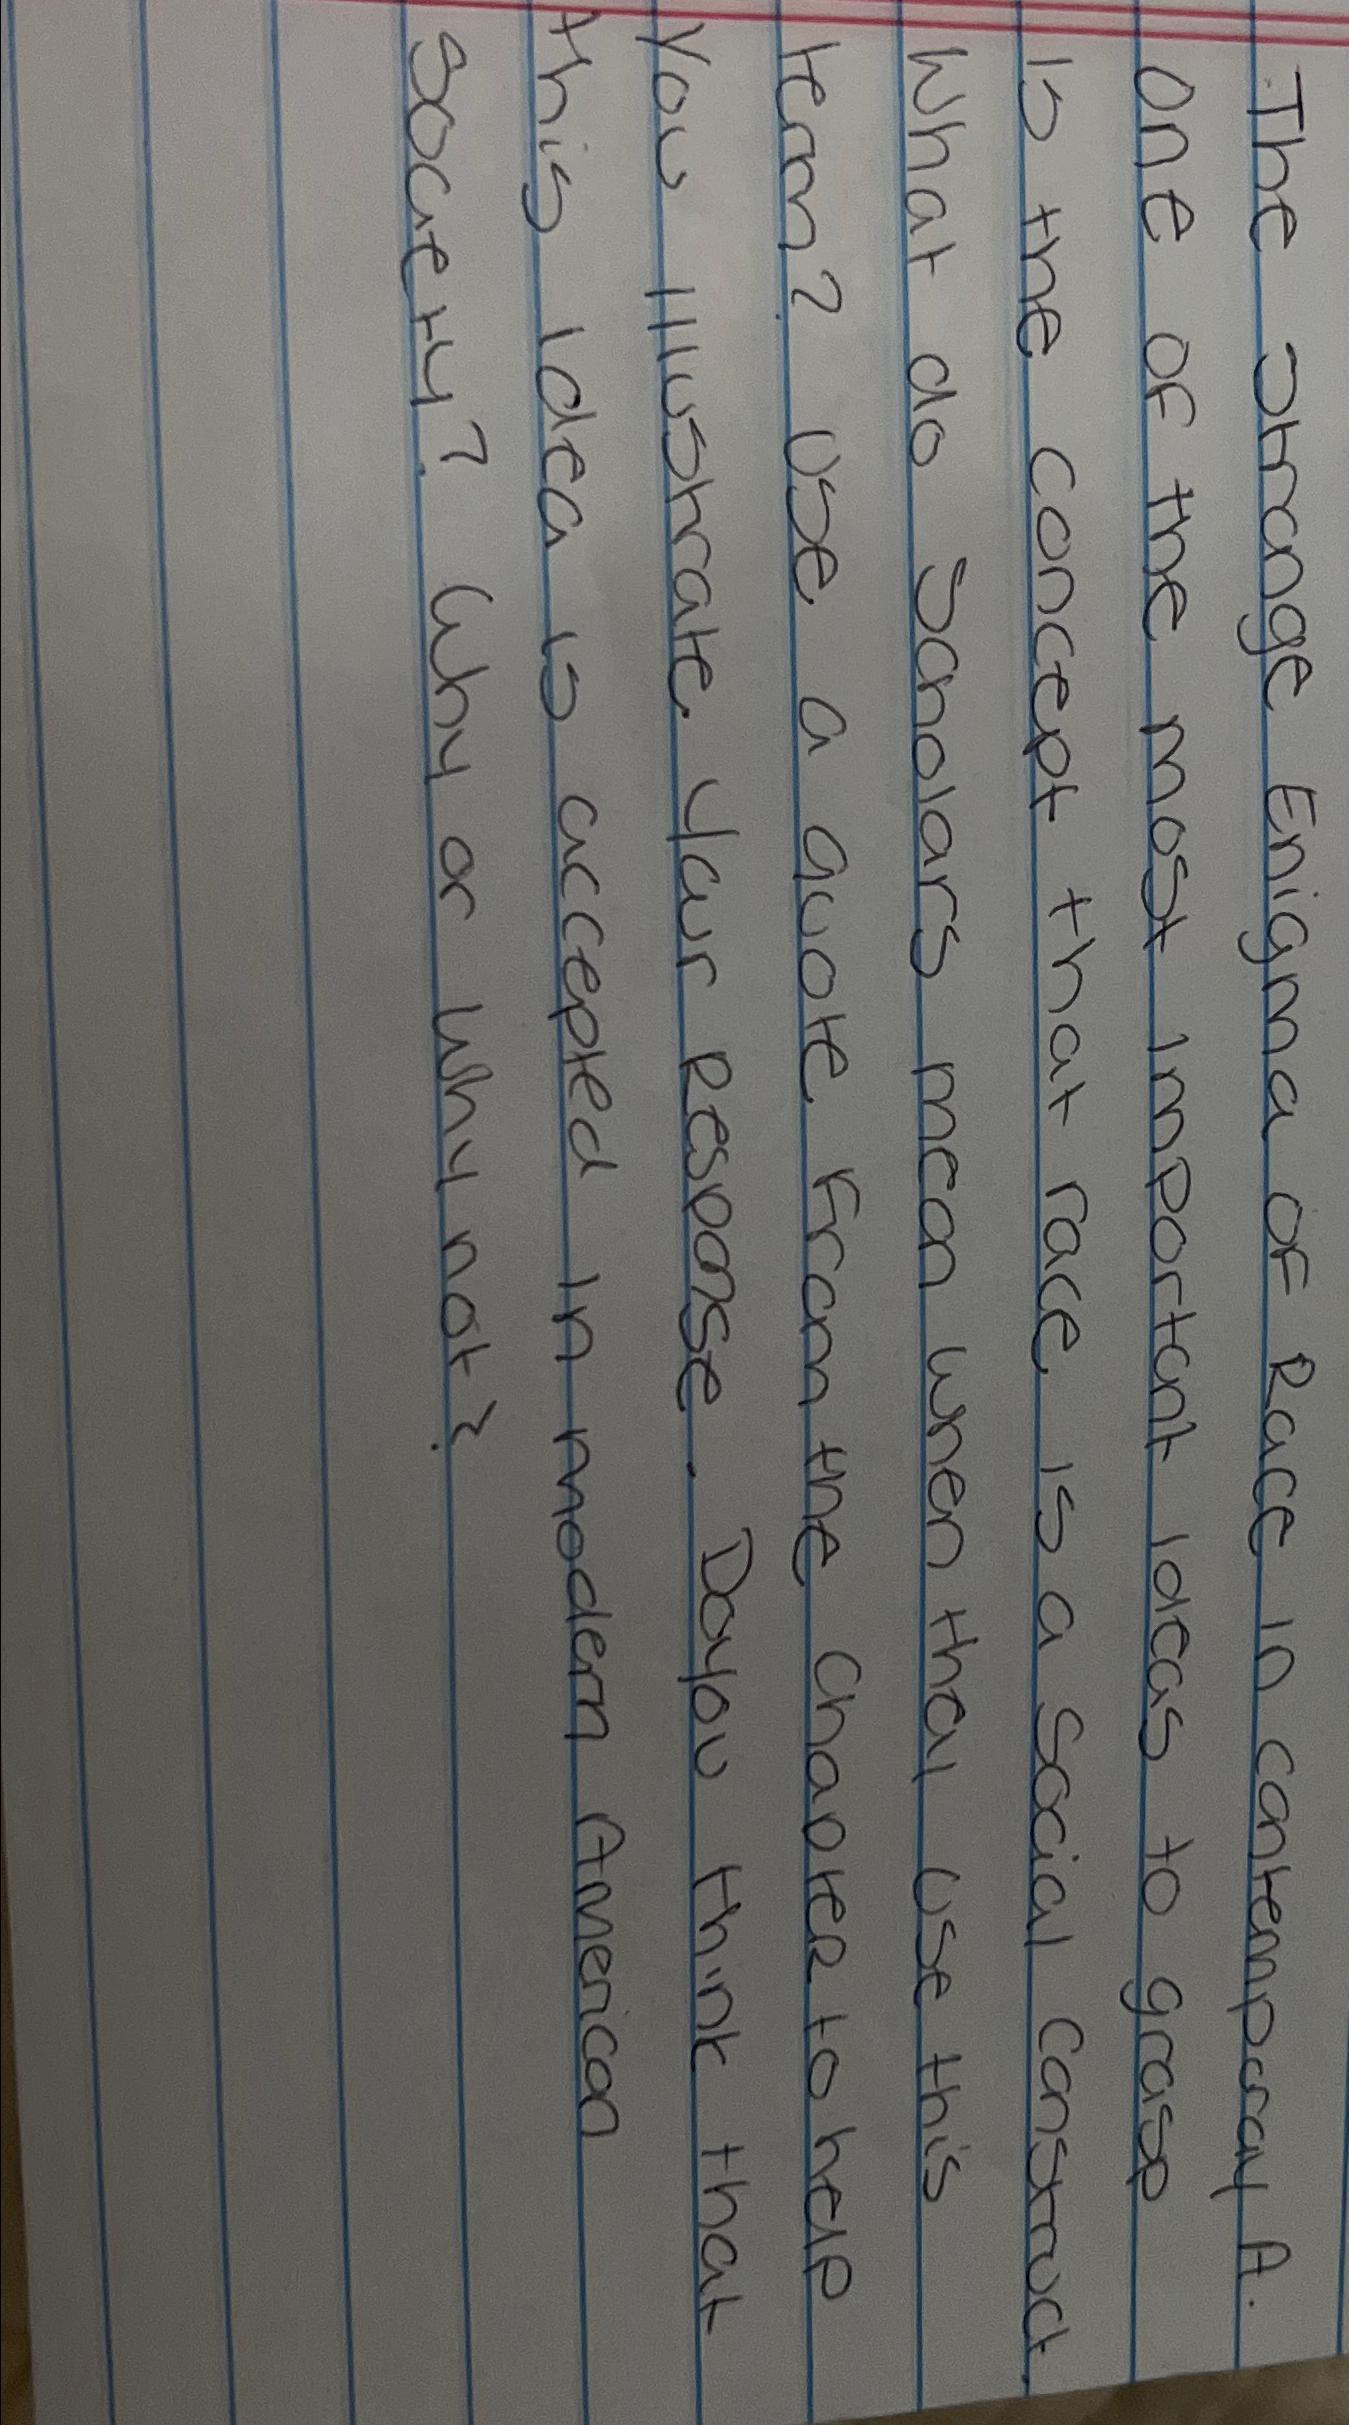 The Strange Enigma of Race in Contemporay A.
One of the most important ideas to grasp
is the concept that race is a social construct.
What do scholars mean when thay use this
term? Use a quote from the chapter to help
you illustrate your response. Do you think that
this idea is accepted in modern American
society? Why or why not?